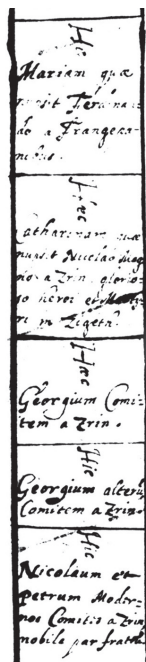 Hic
Mariam quæ
Ferdinan=
do a Frangepa=
nibus.
Hæc
Catharinam quæ
nupsit Nicolao Mag
no a Zrin glorio
so heroi et Marty
ri in Zigeth.
Hæc
Georgium Comi=
tem a Zrin.
Hic
Georgium alterū
Comitem a Zrin.
Hic
Nicolaum et
Petrum Moder=
nos Comites a Zrin
nobile par fratrū